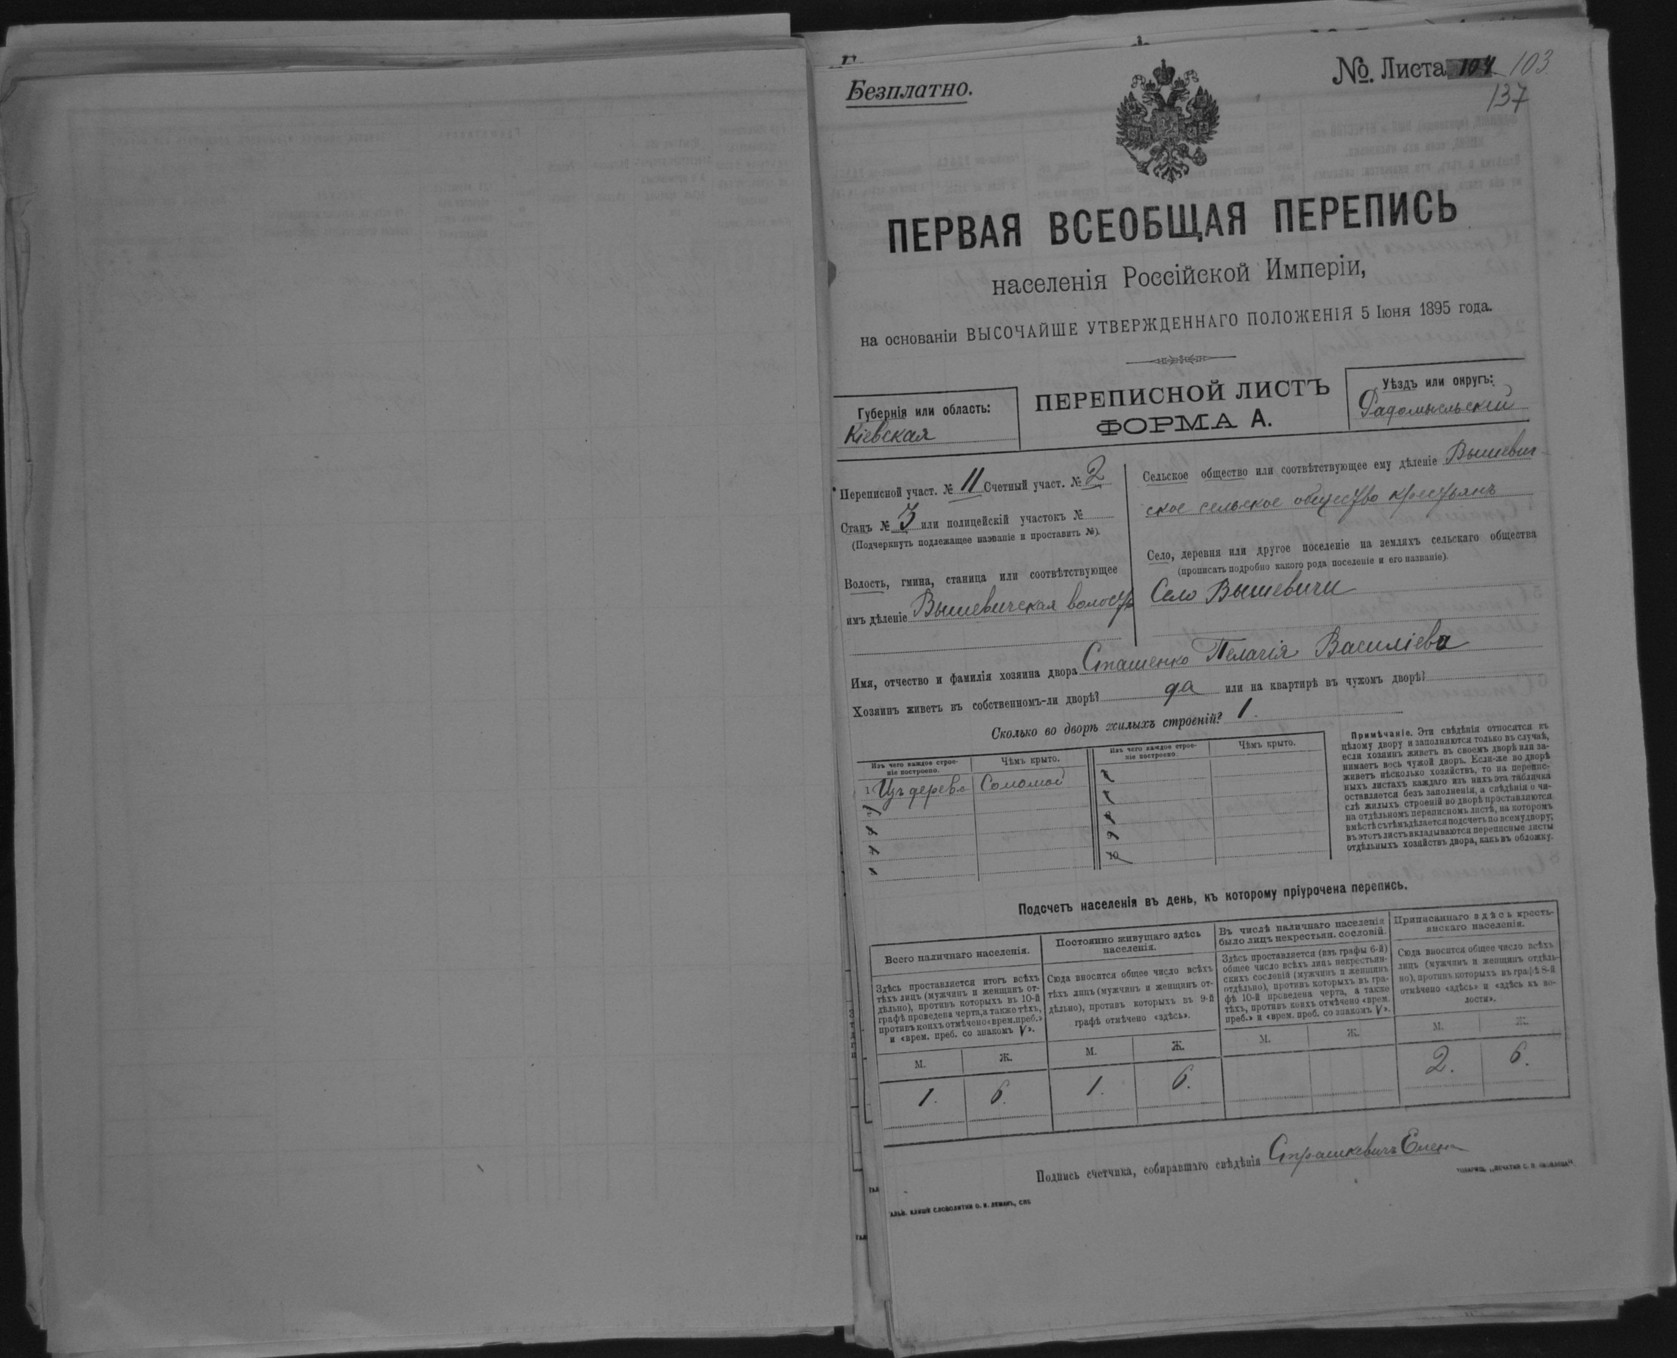 Безплатно.
№ Листа 104 103
137
ПЕРВАЯ ВСЕОБЩАЯ ПЕРЕПИСЬ
населенія Россійской Имперіи,
на основаніи ВЫСОЧАЙШЕ УТВЕРЖДЕННАГО ПОЛОЖЕНІЯ 5 Іюня 1895 года.
Губернія или область:
Кіевская
ПЕРЕПИСНОЙ ЛИСТЪ
ФОРМА А.
Уѣздъ или округъ:
Радомысльскій
Переписной участ. № 11 Счетный участ. № 2
Станъ № 3 или полицейскій участокъ №
(Подчеркнуть подлежащее названіе и проставить №).
Волость, гмина, станица или соотвѣтствующее
имъ дѣленіе Вышевичская волость
Сельское общество или соотвѣтствующее ему дѣленіе Вышевич-
ское сельское общество крестьянъ
Село, деревня или другое поселеніе на земляхъ сельскаго общества
(прописать подробно какого рода поселеніе и его названіе).
Село Вышевичи
Имя, отчество и фамилія хозяина двора Сташенко Пелагія Василіева
Хозяинъ живетъ въ собственномъ-ли дворѣ? да или на квартирѣ въ чужомъ дворѣ?
Сколько во дворѣ жилыхъ строеній? 1.
Изъ чего каждое строе-
ніе построено.
Чѣмъ крыто.
Изъ чего каждое строе-
ніе построено.
Чѣмъ крыто.
1 Изъ дерева Соломой
Примѣчаніе. Эти свѣдѣнія относятся къ
цѣлому двору и заполняются только въ случаѣ,
если хозяинъ живетъ въ своемъ дворѣ или за-
нимаетъ весь чужой дворъ. Если-же во дворѣ
живетъ нѣсколько хозяйствъ, то на перепис-
ныхъ листахъ каждаго изъ нихъ эта табличка
оставляется безъ заполненія, а свѣдѣнія о чи-
слѣ жилыхъ строеній во дворѣ проставляются
на отдѣльномъ переписномъ листѣ, на которомъ
вмѣстѣ съ тѣмъ дѣлается подсчетъ по всему двору;
въ этотъ листъ вкладываются переписные листы
отдѣльныхъ хозяйствъ двора, какъ въ обложку.
Подсчетъ населенія въ день, къ которому пріурочена перепись.
Всего наличнаго населенія.
Здѣсь проставляется итогъ всѣхъ
тѣхъ лицъ (мужчинъ и женщинъ от-
дѣльно), противъ которыхъ въ 10-й
графѣ проведена черта, а также тѣхъ,
противъ коихъ отмѣчено «врем. преб.»
и «врем. преб. со знакомъ V».
Постоянно живущаго здѣсь
населенія.
Сюда вносится общее число всѣхъ
тѣхъ лицъ (мужчинъ и женщинъ от-
дѣльно), противъ которыхъ въ 9-й
графѣ отмѣчено «здѣсь».
Въ числѣ наличнаго населенія
было лицъ некрестьян. сословій.
Здѣсь проставляется (изъ графы 6-й)
общее число всѣхъ лицъ некрестьян-
скихъ сословій (мужчинъ и женщинъ
отдѣльно), противъ которыхъ въ гра-
фѣ 10-й проведена черта, а также
тѣхъ, противъ коихъ отмѣчено «врем.
преб.» и «врем. преб. со знакомъ V».
Приписаннаго здѣсь кресть-
янскаго населенія.
Сюда вносится общее число всѣхъ
лицъ (мужчинъ и женщинъ отдѣль-
но), противъ которыхъ въ графѣ 8-й
отмѣчено «здѣсь» и «здѣсь къ во-
лости».
М. Ж. М. Ж. М. Ж. М. Ж.
1. 6. 1. 6. 2. 6.
Подпись счетчика, собиравшаго свѣдѣнія Страшкевичъ